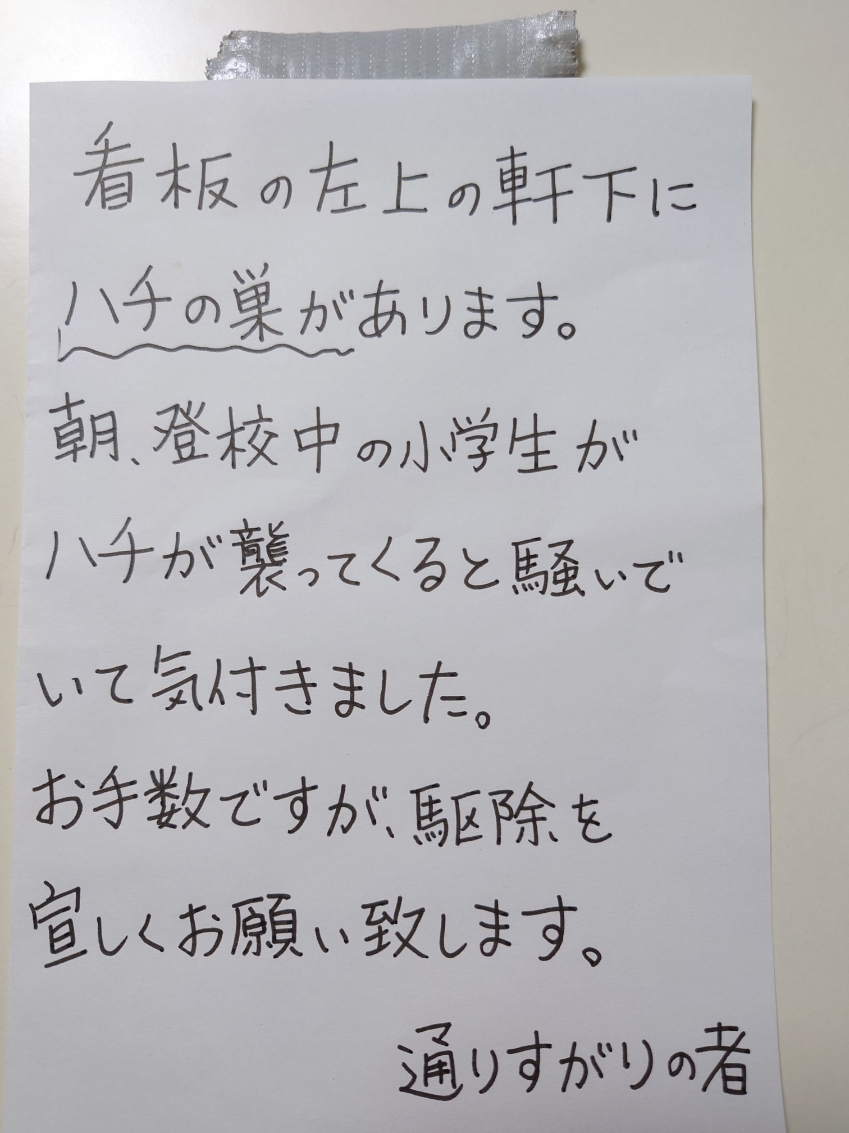 看板の左上の軒下に
ハチの巣があります。
朝、登校中の小学生が
ハチが襲ってくると騒いで
いて気付きました。
お手数ですが、駆除を
宜しくお願い致します。
通りすがりの者